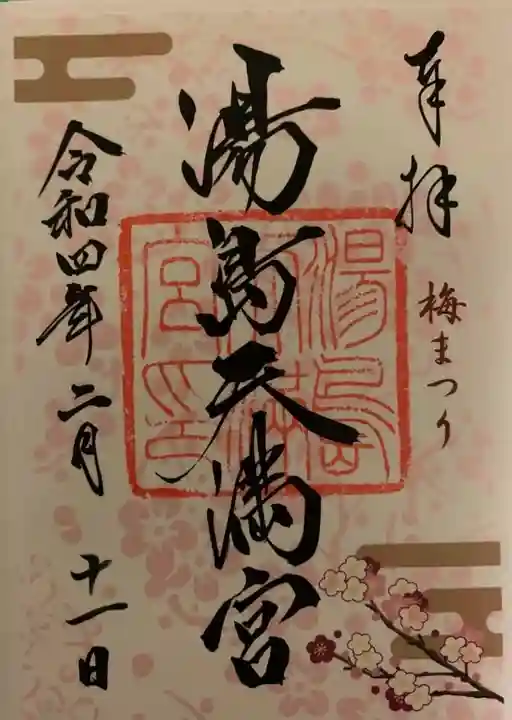 奉拝
梅まつり
湯島天満宮
湯島天満宮印
令和四年二月十一日